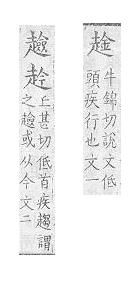 趛
牛錦切說文低
頭疾行也文一
赺
丘甚切低首疾趨謂
之或从今文二